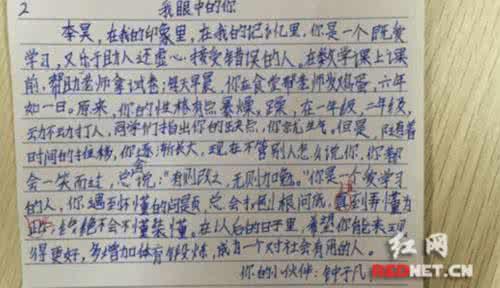 2
我眼中的你
李昊，在我的印象里，在我的记忆里，你是一个既爱
学习，又乐于助人还虚心接受错误的人。在数学课上课
前，帮助老师拿试卷；每天早晨，你在食堂帮老师发鸡蛋，六年
如一日。原来，你的性格有点暴燥，躁，在一年级，二年级，
动不动打人，同学们指出你的缺点，你就生气。但是，随着
时间的推移，你逐渐长大，现在不管别人怎么说你，你都
会一笑而过，总说："有则改之，无则加勉。"你是一个爱学习
的人，你遇到不懂的问题，总会打刨根问底，直到弄懂为
止，绝不会不懂装懂。在以后的日子里，希望你能表现
得更好，多增加体育锻炼，成为一个对社会有用的人。
你的小伙伴：钟子凡
红网
REDNET.CN